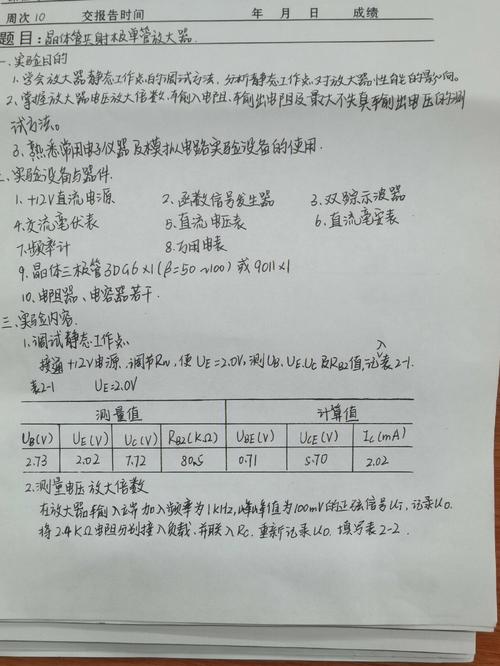 周次10 交报告时间 年 月 日 成绩
题目：晶体管共射极单管放大器.
一、实验目的
1、学会放大器静态工作点的调试方法，分析静态工作点对放大器性能的影响。
2、掌握放大器电压放大倍数、输入电阻、输出电阻及最大不失真输出电压的测
试方法。
3、熟悉常用电子仪器及模拟电路实验设备的使用.
二、实验设备与器件.
1、+12V直流电源 2、函数信号发生器 3、双踪示波器
4、交流毫伏表 5、直流电压表 6、直流毫安表
7、频率计 8、万用电表
9、晶体三极管3DG6×1(β=50~100)或9011×1
10、电阻器、电容器若干.
三、实验内容.
1、调试静态工作点
接通+12V电源、调节Rw,使UE=2.0V,测UB、UE、UC及RB2值,记入表2-1.
表2-1 UE=2.0V
测量值 计算值
UB(V) UE(V) UC(V) RB2(KΩ) UBE(V) UCE(V) IC(mA)
2.73 2.02 7.72 80.5 0.71 5.70 2.02
2.测量电压放大倍数
在放大器输入端加入频率为1KHz,峰峰值为100mV的正弦信号Ui,记录Uo.
将2.4KΩ电阻分别接入负载、并联入Rc.重新记录Uo.填写表2-2.